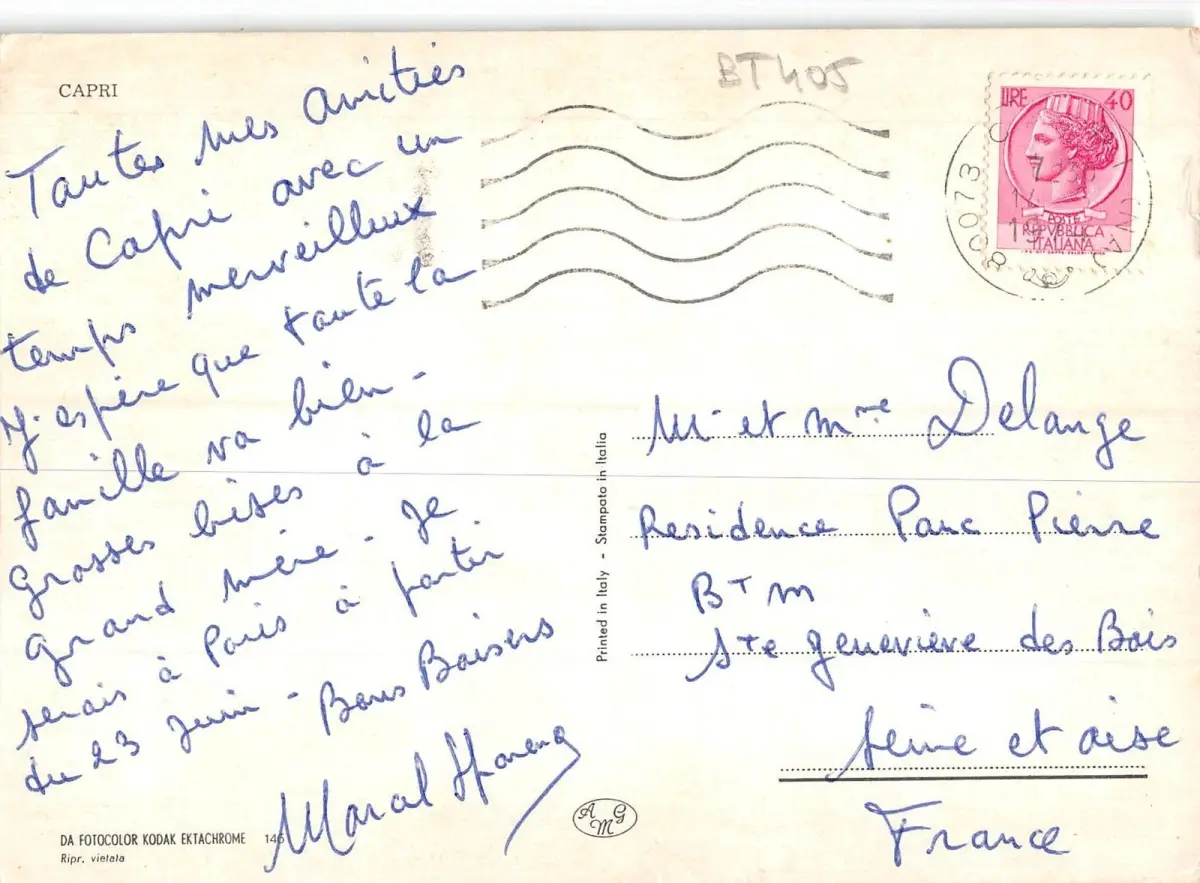 CAPRI
BT405
Toutes mes amitiés
de Capri avec un
temps merveilleux
J'espère que toute la
famille va bien -
grosses bises à la
grand mère - Je
serais à Paris à partir
du 23 Juin - Bons Baisers
Marcel
LIRE 40
POSTE
REPVBBLICA
ITALIANA
80073
Mr et Mme Delange
Residence Parc Pierre
BT m
Ste Geneviève des Bois
Seine et oise
France
Printed in Italy - Stampato in Italia
DA FOTOCOLOR KODAK EKTACHROME 146
Ripr. vietata
AMG